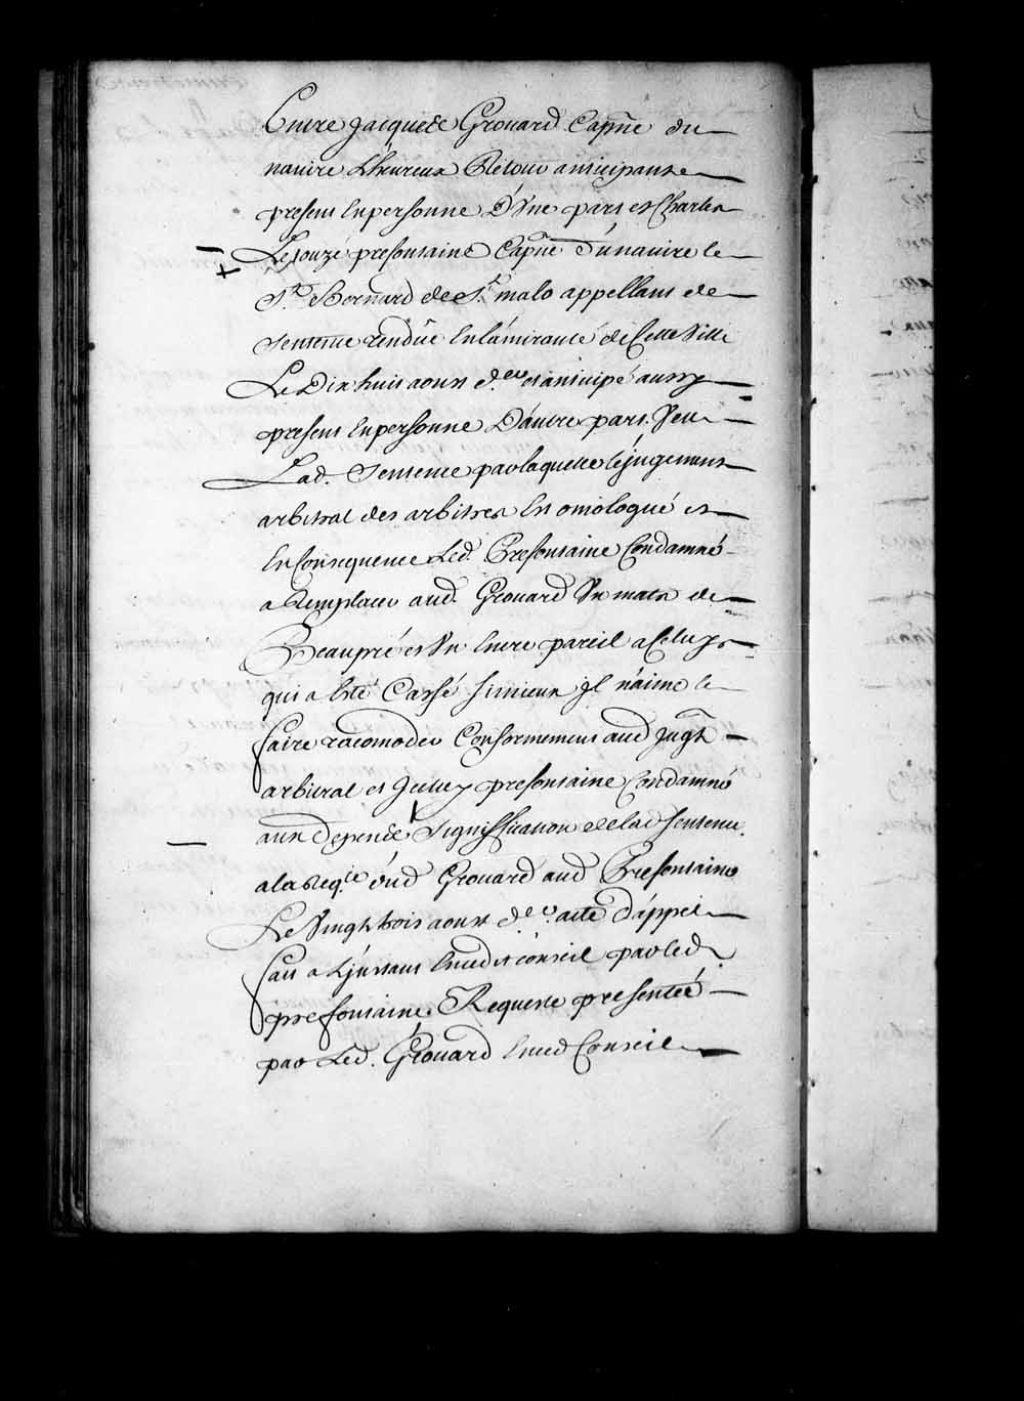 Entre Jacques Grouard Capne du
navire L'heureux Retour anticipant
present En personne D'Une part et Charles
Lejouzé presontaine Capne du navire le
St. Bernard de St. malo appellant de
sentence rendüe En L'amirauté de Cette Ville
Le Dix huit aoust d.er et anticipé aussy
present En personne D'autre part. Veu
Lad. Sentence par laquelle le jugement
arbitral des arbitres Est omologué et
En Consequence Led. Presontaine Condamné
a Remplacer aud. Grouard Un mats de
Beaupré et Un Livre pareil a Celuy
qui a Eté Cassé si mieux Il n'aime le
faire racomoder Conformement aud Jugt
arbitral et Iceluy presontaine Condamné
aux depends Signiffication de lad Sentence
a la Reqte dud Grouard aud Presontaine
Le Vingt trois aoust d.er acte d'appel
fait a L'instant En ced. conseil par led
presontaine. Requeste presentée
par Led. Grouard En ced Conseil